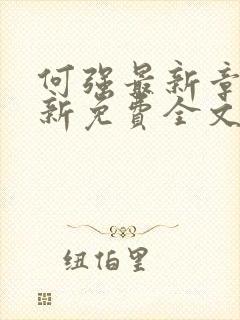 何强最新章
新免费全文
纽伯里